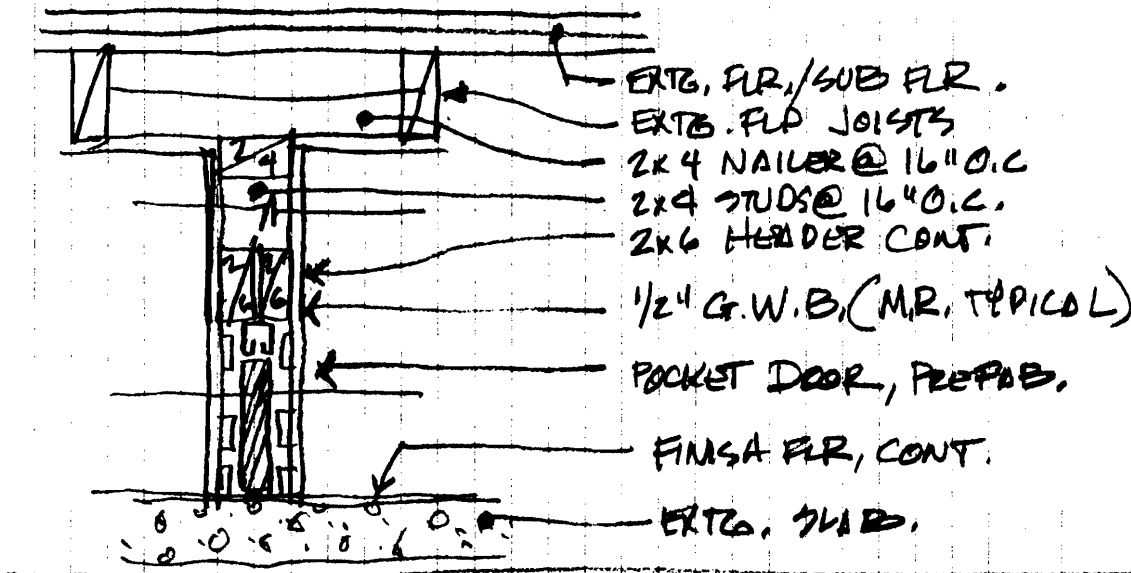 EXTG. FLR./SUB FLR.
EXTG. FLR JOISTS
2x4 NAILER @ 16" O.C
2x4 STUDS @ 16" O.C.
2x6 HEADER CONT.
1/2" G.W.B. (M.R. TYPICAL)
POCKET DOOR, PREFAB.
FINISH FLR, CONT.
EXTG. SLAB.
2
4
2 2
6 6